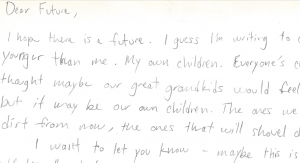 Dear Future,
I hope there is a future. I guess I'm writing to
younger than me. My own children. Everyone's
thought maybe our great grandkids would feel
but it may be our own children. The ones we
dirt from now, the ones that will shovel d
I want to let you know – maybe this is